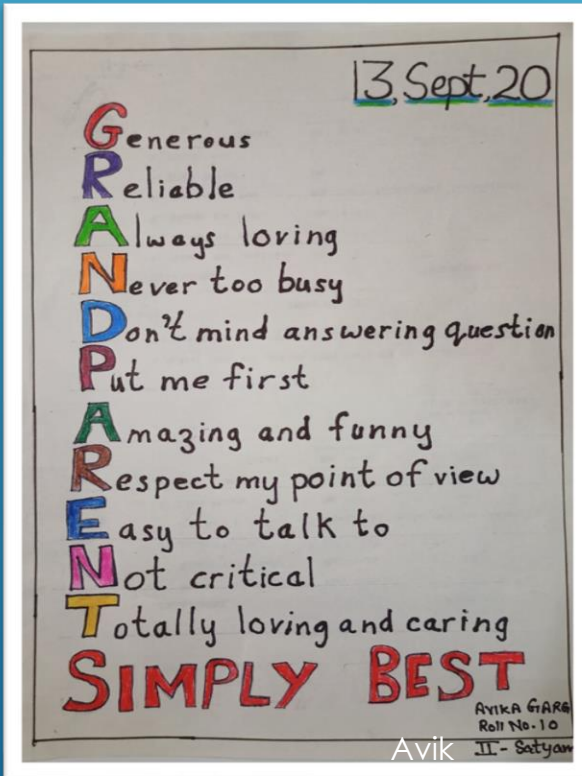 13, Sept, 20
Generous
Reliable
Always loving
Never too busy
Don't mind answering question
Put me first
Amazing and funny
Respect my point of view
Easy to talk to
Not critical
Totally loving and caring
SIMPLY BEST
AVIKA GARG
Roll No. 10
II - Satyam
Avik